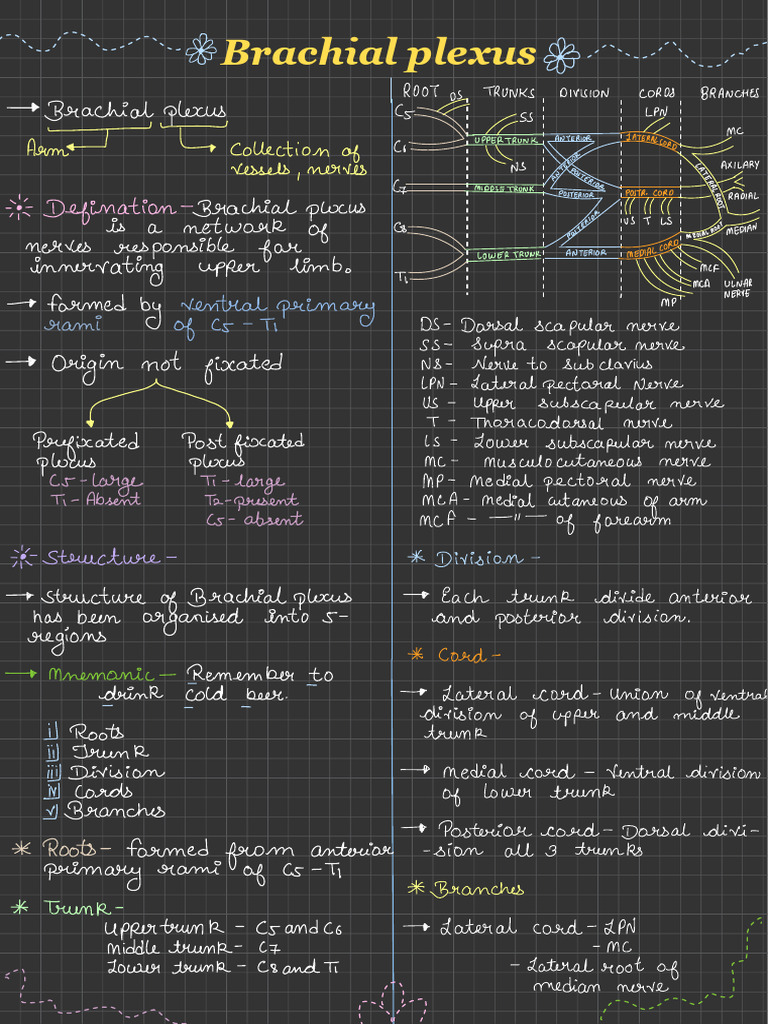 Brachial plexus
→ Brachial plexus
Arm
Collection of
vessels, nerves
Defination - Brachial plexus
is a network of
nerves responsible for
innervating upper limb.
→ formed by ventral primary
rami of C5 - T1
→ Origin not fixated
Prefixated
plexus
C5 - large
T1 - Absent
Post fixated
plexus
T1 - large
T2 - present
C5 - absent
Structure -
→ Structure of Brachial plexus
has been organised into 5-
regions
→ Mnemanic - Remember to
drink cold beer.
i) Roots
ii) Trunk
iii) Division
iv) Cords
v) Branches
* Roots - formed from anterior
primary rami of C5 - T1
* Trunk -
Upper trunk - C5 and C6
Middle trunk - C7
Lower trunk - C8 and T1
ROOT TRUNKS DIVISION CORDS BRANCHES
C5
DS
SS
LPN
MC
C6
UPPER TRUNK
ANTERIOR
LATERAL CORD
NS
ANTERIOR
POSTERIOR
LATERAL ROOT
AXILARY
C7
MIDDLE TRUNK
POSTERIOR
POSTR. CORD
RADIAL
US T LS
C8
POSTERIOR
MEDIAL ROOT
MEDIAN
LOWER TRUNK
ANTERIOR
MEDIAL CORD
T1
MCF
MCA
ULNAR
NERVE
MP
DS - Dorsal scapular nerve
SS - Supra scapular nerve
NS - Nerve to subclavius
LPN - Lateral pectoral Nerve
US - Upper subscapular nerve
T - Thoracodorsal nerve
LS - Lower subscapular nerve
MC - musculocutaneous nerve
MP - medial pectoral nerve
MCA - medial cutaneous of arm
MCF - —"— of forearm
* Division -
→ Each trunk divide anterior
and posterior division.
* Cord -
→ Lateral cord - Union of ventral
division of upper and middle
trunk
→ Medial cord - Ventral division
of lower trunk
→ Posterior cord - Dorsal divi-
-sion all 3 trunks
* Branches
→ Lateral cord - LPN
- MC
- Lateral root of
median nerve